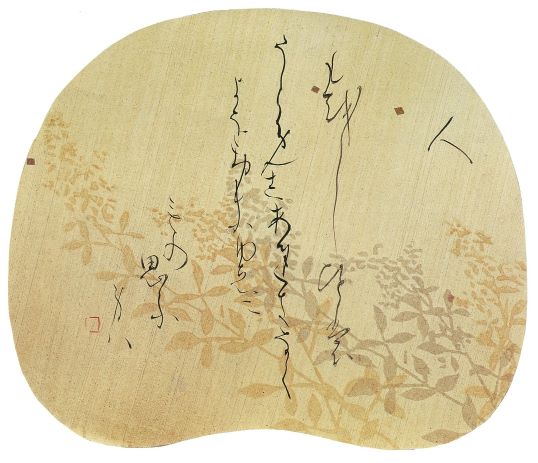 人
も越しひと裳
うらめしあちきなく
よをおもふゆゑに
もの
思ふ
身は